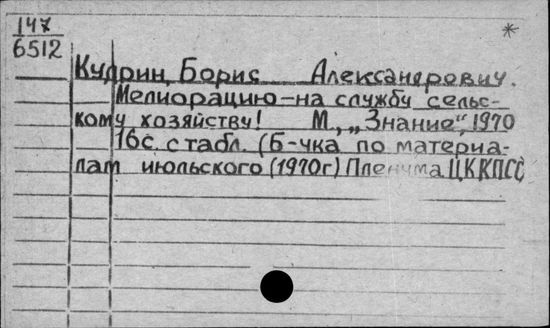 147
6512
*
Кудрин, Борис Александрович.
Мелиорацию – на службу сельс-
кому хозяйству! М., „Знание", 1970
16с. с табл. (Б-чка по материа-
лам июльского (1970г) Пленума ЦК КПСС